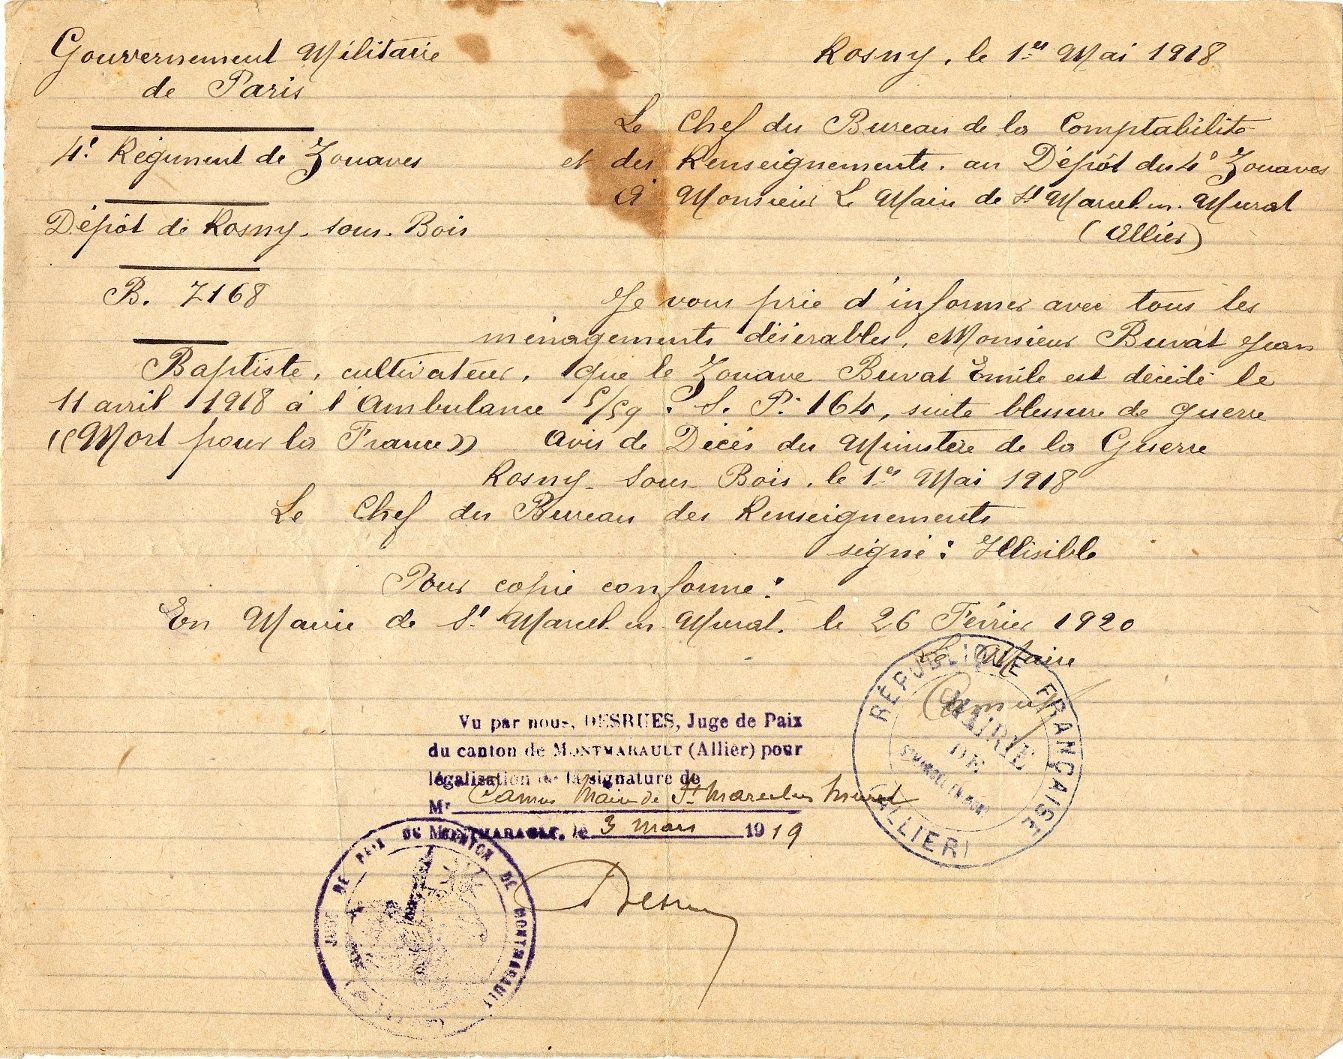 Gouvernement Militaire
de Paris
4e Régiment de Zouaves
Dépôt de Rosny-sous-Bois
B. 7168
Rosny, le 1er Mai 1918
Le Chef du Bureau de la Comptabilité
et des Renseignements au Dépôt du 4e Zouaves
à Monsieur Le Maire de St Marcel en Murat
(Allier)
Je vous prie d'informer avec tous les
ménagements désirables, Monsieur Buvat Jean
Baptiste, cultivateur, que le Zouave Buvat Emile est décédé le
11 avril 1918 à l'Ambulance 5/59. S. P. 164, suite blessure de guerre
((Mort pour la France)) Avis de Décès du Ministère de la Guerre
Rosny-sous-Bois, le 1er Mai 1918
Le Chef du Bureau des Renseignements
signé : Illisible
Pour copie conforme :
En Mairie de St Marcel en Murat. le 26 Février 1920
Le Maire
Camus
RÉPUBLIQUE FRANÇAISE
MAIRIE
DE
(ALLIER)
Vu par nous, DESRUES, Juge de Paix
du canton de MONTMARAULT (Allier) pour
légalisation de la signature de
Mr Camus Maire de St Marcel en Murat
MONTMARAULT, le 3 mars 1919
JUGE DE PAIX DU CANTON DE MONTMARAULT
Desrues